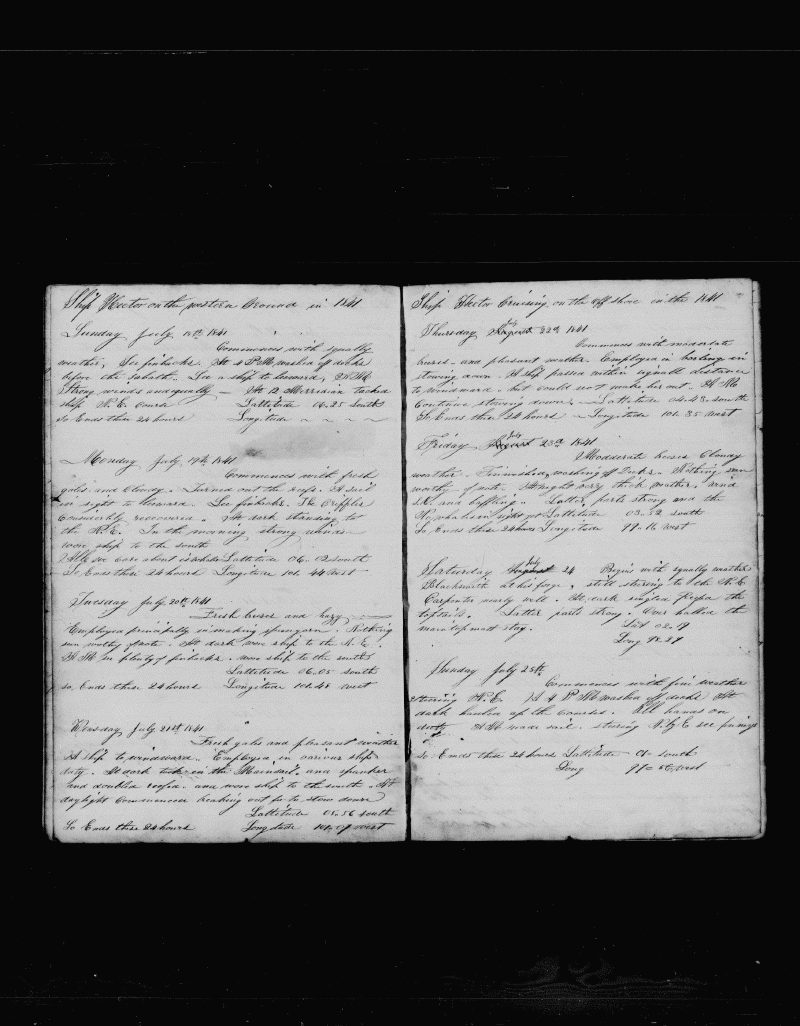 Ship Hector on the western Ground in 1841
Sunday July 18th 1841
Commences with squally
weather, See finbacks. At 4 PM washed off decks
before the Sabath. See a ship to leeward, AM
Strong winds and squally — At 12 Merridian tacked
ship N.E. Course Lattitude 06.25 South
So Ends these 24 hours Longitude ~ ~ ~ ~
Monday July 19th 1841
Commences with fresh
gales and Cloudy. Turned out the reefs. A Sail
in sight to leeward. See finbacks. The
Considerbly reccovered. At dark standing to
the N.E. In the morning strong winds
wore ship to the south
Lattitude 06.02 south
So Ends these 24 hours Longitude 101.44 West
Tuesday July 20th 1841
Fresh breses and hazy
Employed principally in making spunyarn. Nothing
seen wothy of note. At dark wore ship to the N.E.
AM in plenty of finbacks. wore ship to the south
Lattitude 06.05 south
so Ends these 24 hours Longitude 101.48 west
Wensday July 21st 1841
Fresh gales and pleasant weather
A ship to windward. Employed in various ships
duty. At dark took in the Mainsail, and spanker
and doubled reefed. and wore ship to the south. At
daylight Commenced breaking out for to stow down
Lattitude 05.56 south
So Ends these 24 hours Longitude 101.09 west
Ship Hector Cruising on the off shore in the 1841
July
Thursday August 22d 1841
Commences with moderate
breses and pleasant weather. Employed in boiling and
stowing down. A ship passed within signall distance
to windward. but could not make her out. AM
Continue stowing down. — Lattitude 04.43. south
So Ends these 24 hours — Longitude 101.35 west
July
Friday August 23d 1841
Moderate breses Cloudy
weather. Finnished washing off Decks. Nothing seen
worthy of note. Thought very thick weather, wind
S.E. and baffling. Latter parts strong and the
No whales in sight yet Lattitude 03.52 south
So Ends these 24 hours Longitude 99.16 west
July
Saturday August 24 Begins with squally weather
Blacksmith at his forge, still steering to the N.E.
Carpenter nearly well. At dark singled reefed the
topsails. Latter parts strong. Over halled the
main topmast stay. Lat 02.19
Long 98.29
Sunday July 25th
Commences with fine weather
steering N.E. At 4 PM washed off decks At
dark hauled up the courses. All hands on
duty AM made sail. stearing N by E see
So Ends these 24 hours Lattitude 01- south
Long 97= 56 west